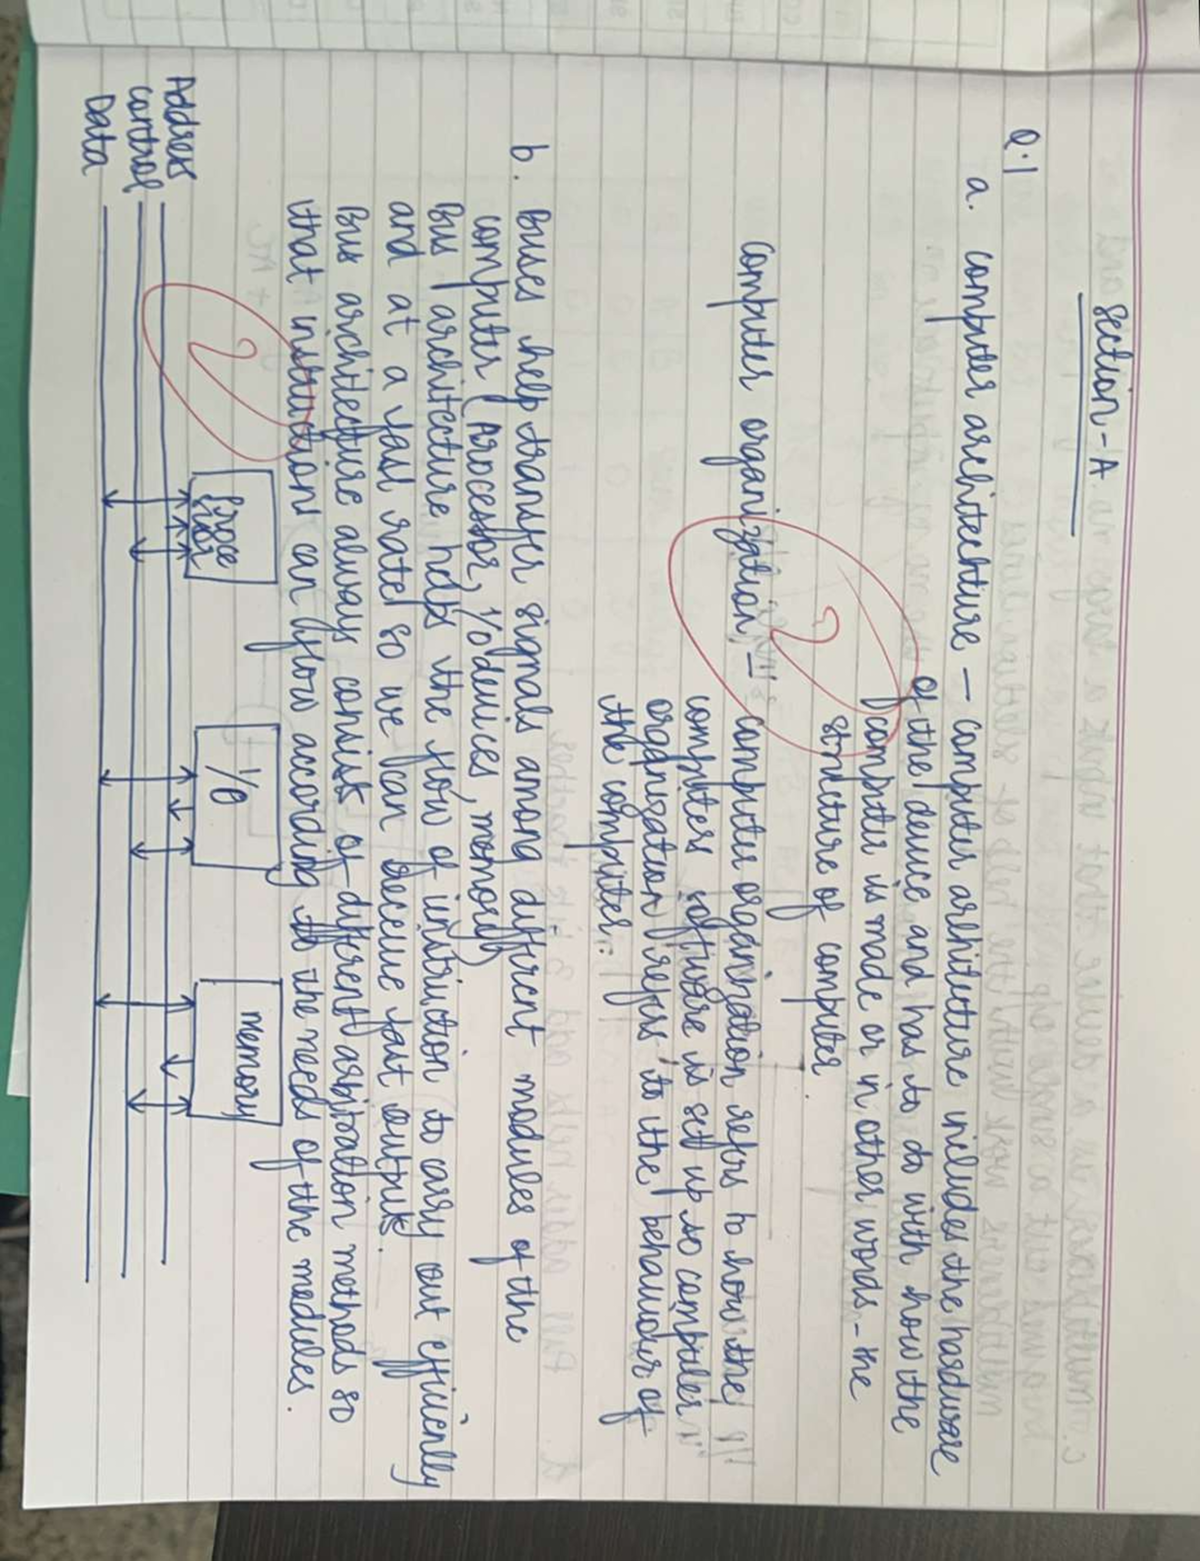 Section-A
Q.1
a. computer architecture - computer arhitecture includes the hardware
of the device and has to do with how the
computer is made or in other words - the
structure of computer.
computer organization - computer organization refers to how the
computers software is set up so computer
organization refers to the behaviour of
the computer.
2
b. Buses help transfer signals among different modules of the
computer (Processor, I/o devices, memory)
Bus architecture helps the flow of instruction to carry out efficiently
and at a fast rate so we can receive fast outputs.
Bus architecture always consists of different arbitration methods so
that instructions can flow according to the needs of the modules.
2
Processor
I/O
memory
Address
control
Data